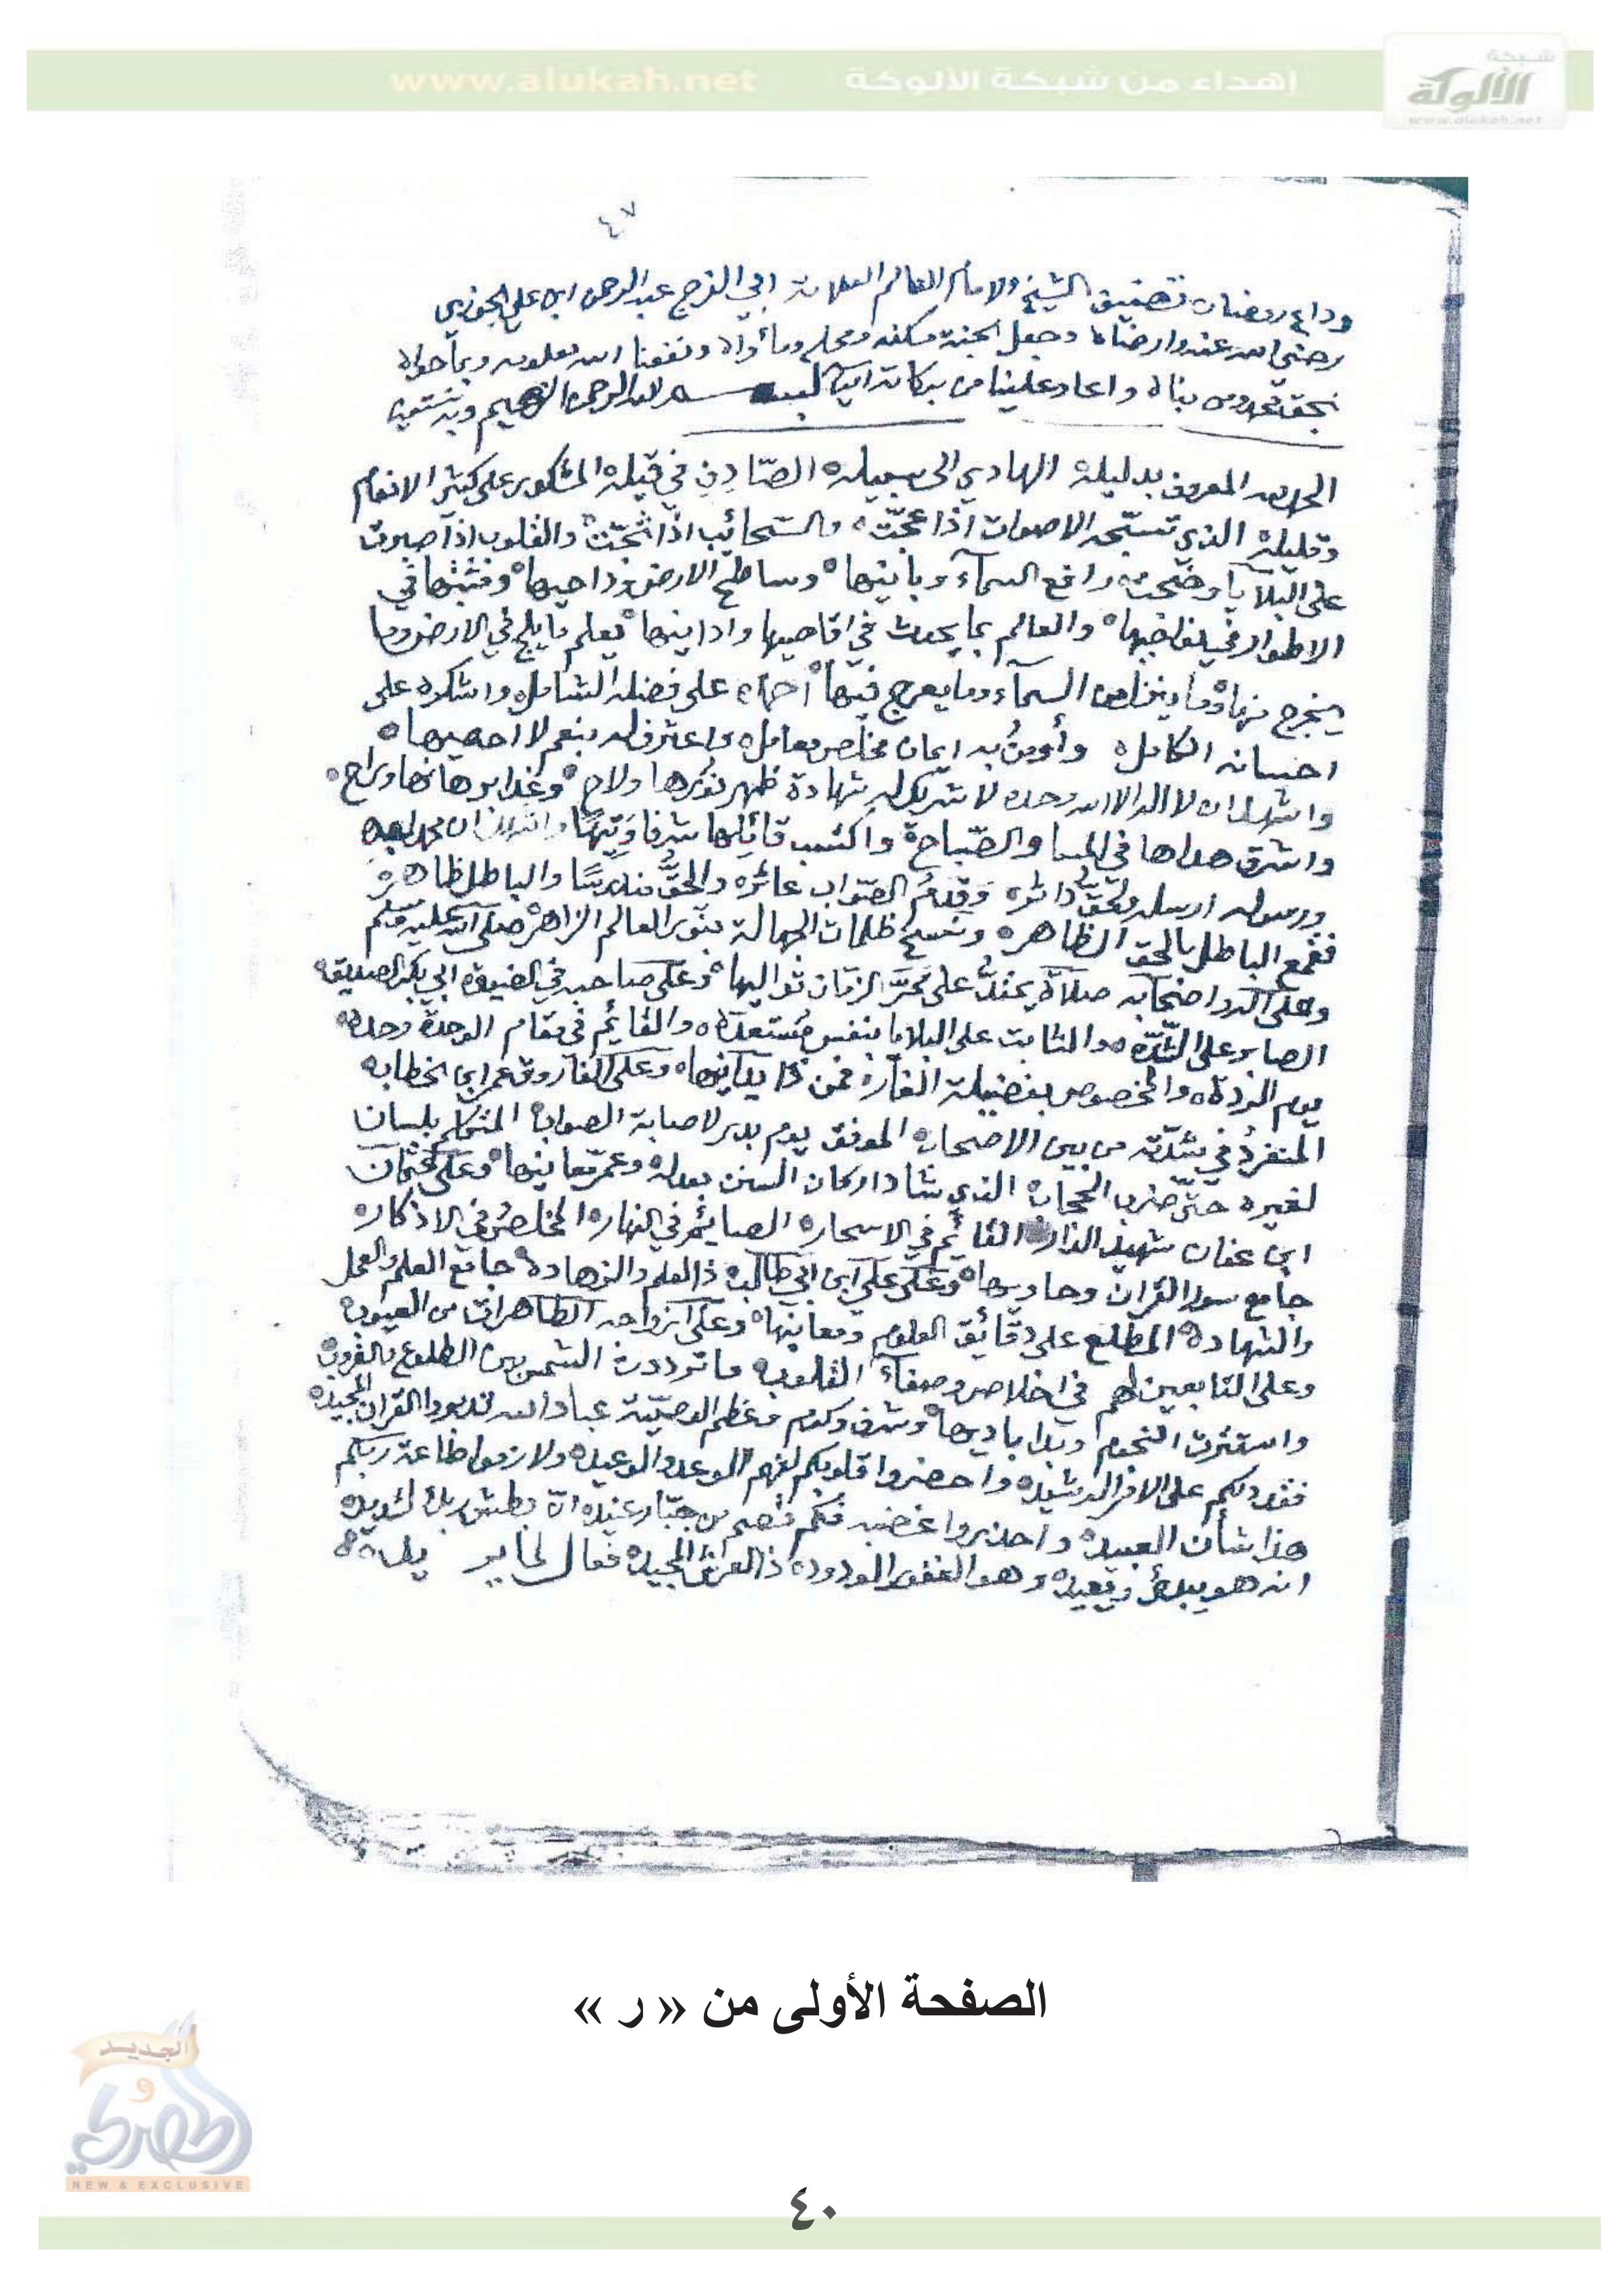 شبكة
الألوكة
www.alukah.net
إهداء من شبكة الألوكة www.alukah.net
٤٧
وداع رمضان تصنيف الشيخ الامام العالم العلامة ابي الفرج عبد الرحمن ابن علي الجوزي
رضي الله عنه وارضاه وجعل الجنة مسكنه ومحله ومأواه ونفعنا الله بعلومه وبما حواه
واعاد علينا من بركاته امين بسم الله الرحمن الرحيم وبه نستعين
الحمد لله المعروف بدليله الهادي الى سبيله الصّادق في قيله المشكور على كثير الانعام
وقليله الذي تسبّحه الاصوات اذا عجّت والسّحائب اذا ثجّت والقلوب اذا صبرت
على البلايا وضجت رافع السمآء وبانيها وساطح الارض وداحيها ومثبتها في
الاطواد في نواحيها والعالم بما يحدث في اقاصيها وادانيها يعلم ما يلج في الارض وما
يخرج منها وما ينزل من السمآء وما يعرج فيها احمده على فضله الشامل واشكره على
احسانه الكامل وأومن به ايمان مخلص معامل واعترف له بنعم لا احصيها
واشهد ان لا اله الا الله وحده لا شريك له شهادة ظهر نورها ولاح وغدا برهانها وراح
واشرق هداها في المسا والصّباح واكتسب قائلها شرفا وتيها واشهد ان محمدا عبده
ورسوله ارسله دائره وقدم الصّواب عاثره والحقّ مندرسا والباطل ظاهره
فقمع الباطل بالحق الظاهر ونسخ ظلمات الجهالة بنور العالم الزاهر صلى الله عليه وسلم
وعلى آله واصحابه صلاة يمتدّ على ممرّ الزمان تواليها وعلى صاحبه ابي بكر الصديق
الصابر على الشّدّه والثابت على البلايا بنفس مستعدّه والقائم في مقام الوحدة وحده
يوم الردة والمخصوص بفضيلة الغار فمن ذا يدانيها وعلى الفاروق عمر ابن الخطاب
المنفرد في شدّته من بين الاصحاب الموفق يوم بدر لاصابة الصواب المتكلم بلسان
لغيره حتى ضرب الحجاب الذي شاد اركان السنن بعدله وعمر معانيها وعلى عثمان
ابن عفان شهيد الدار القائم في الاسحار الصائم في النهار المخلص في الاذكار
جامع سور القران وحاويها وعلى علي ابن ابي طالب ذا العلم والزهاده جامع العلم والعمل
والشهادة المطّلع على دقائق العلوم ومعانيها وعلى ازواجه الطاهرات من العيوب
وعلى التابعين لهم في اخلاص وصفاء القلوب ما ترددت الشمس بين الطلوع والغروب
واستترت النجوم وبدا باديها وشرف وكرم وعظم عباد الله تدبروا القران المجيد
فقد دلكم على الامر الرشيد واحضروا قلوبكم لفهم الوعد والوعيد ولازموا طاعة ربكم
هذا شأن العبيد واحذروا غضبه فكم قصم من جبّار عنيد انّ بطش ربك لشديد
انه هو يبدئ ويعيد وهو الغفور الودود ذا العرش المجيد فعال لما يريد
الصفحة الأولى من « ر »
الجديد
و
الحصري
NEW & EXCLUSIVE
٤٠